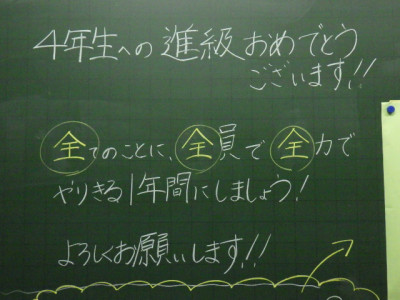 4年生への進級おめでとう
ございます!!
全てのことに、全員で全力で
やりきる1年間にしましょう!
よろしくお願いします!!